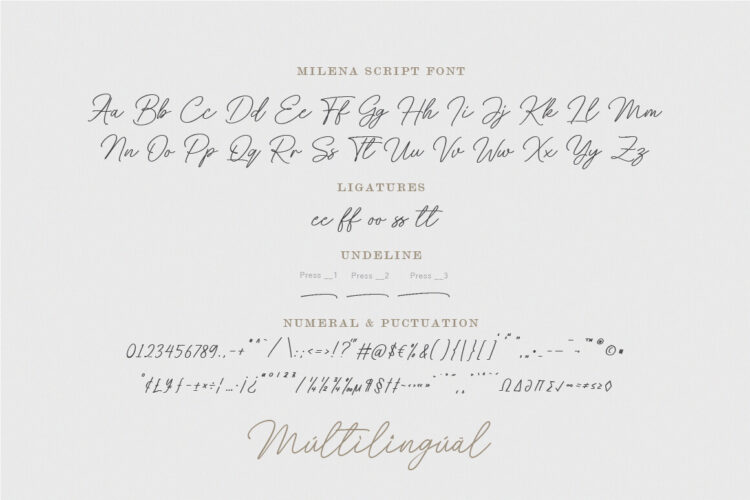 MILENA SCRIPT FONT
Aa Bb Cc Dd Ee Ff Gg Hh Ii Jj Kk Ll Mm
Nn Oo Pp Qq Rr Ss Tt Uu Vv Ww Xx Yy Zz
LIGATURES
ee ff oo ss tt
UNDELINE
Press __1 Press __2 Press __3
NUMERAL & PUCTUATION
0123456789.,-+ /\:;<=>!? #@$€%&(){|}[] ©
¢£¥ƒ-±×÷¡ ¿ /¼½¾‰µ¶§†‡ Ω∆∂∏∑√∞≈≠≤≥◊
Múltílíngúäl